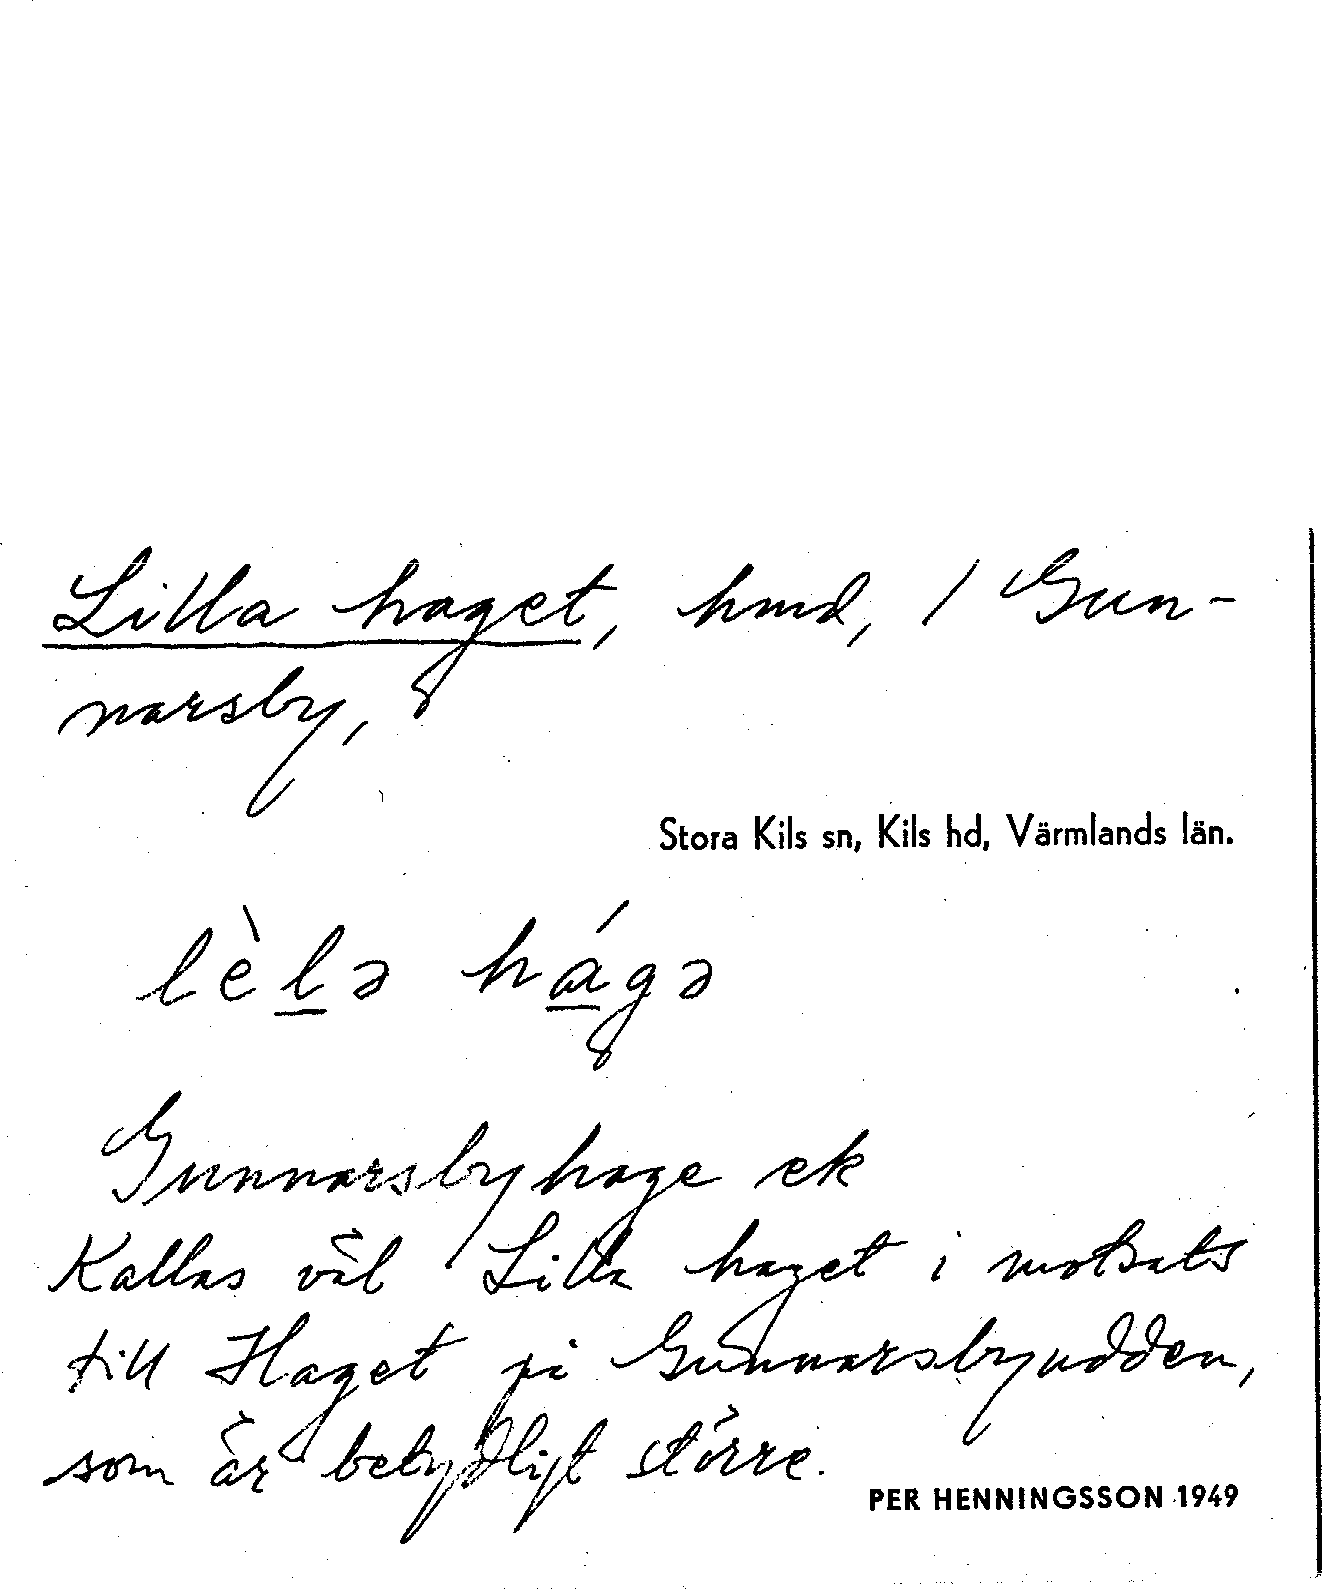 Lilla haget, hmd, / Gun-
narsby,
Stora Kils sn, Kils hd, Värmlands län.
lèlə hágə
Gunnarsbyhage ek
Kallas väl Lilla haget i motsats
till Haget på Gunnarsbyudden,
som är betydligt större.
PER HENNINGSSON 1949